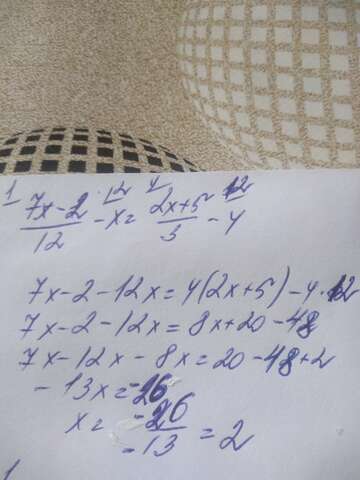 1 12 4 12
(7x-2)/12 - x = (2x+5)/3 - 4
7x-2-12x=4(2x+5)-4·12
7x-2-12x=8x+20-48
7x-12x-8x=20-48+2
-13x=-26
x= -26/-13 = 2